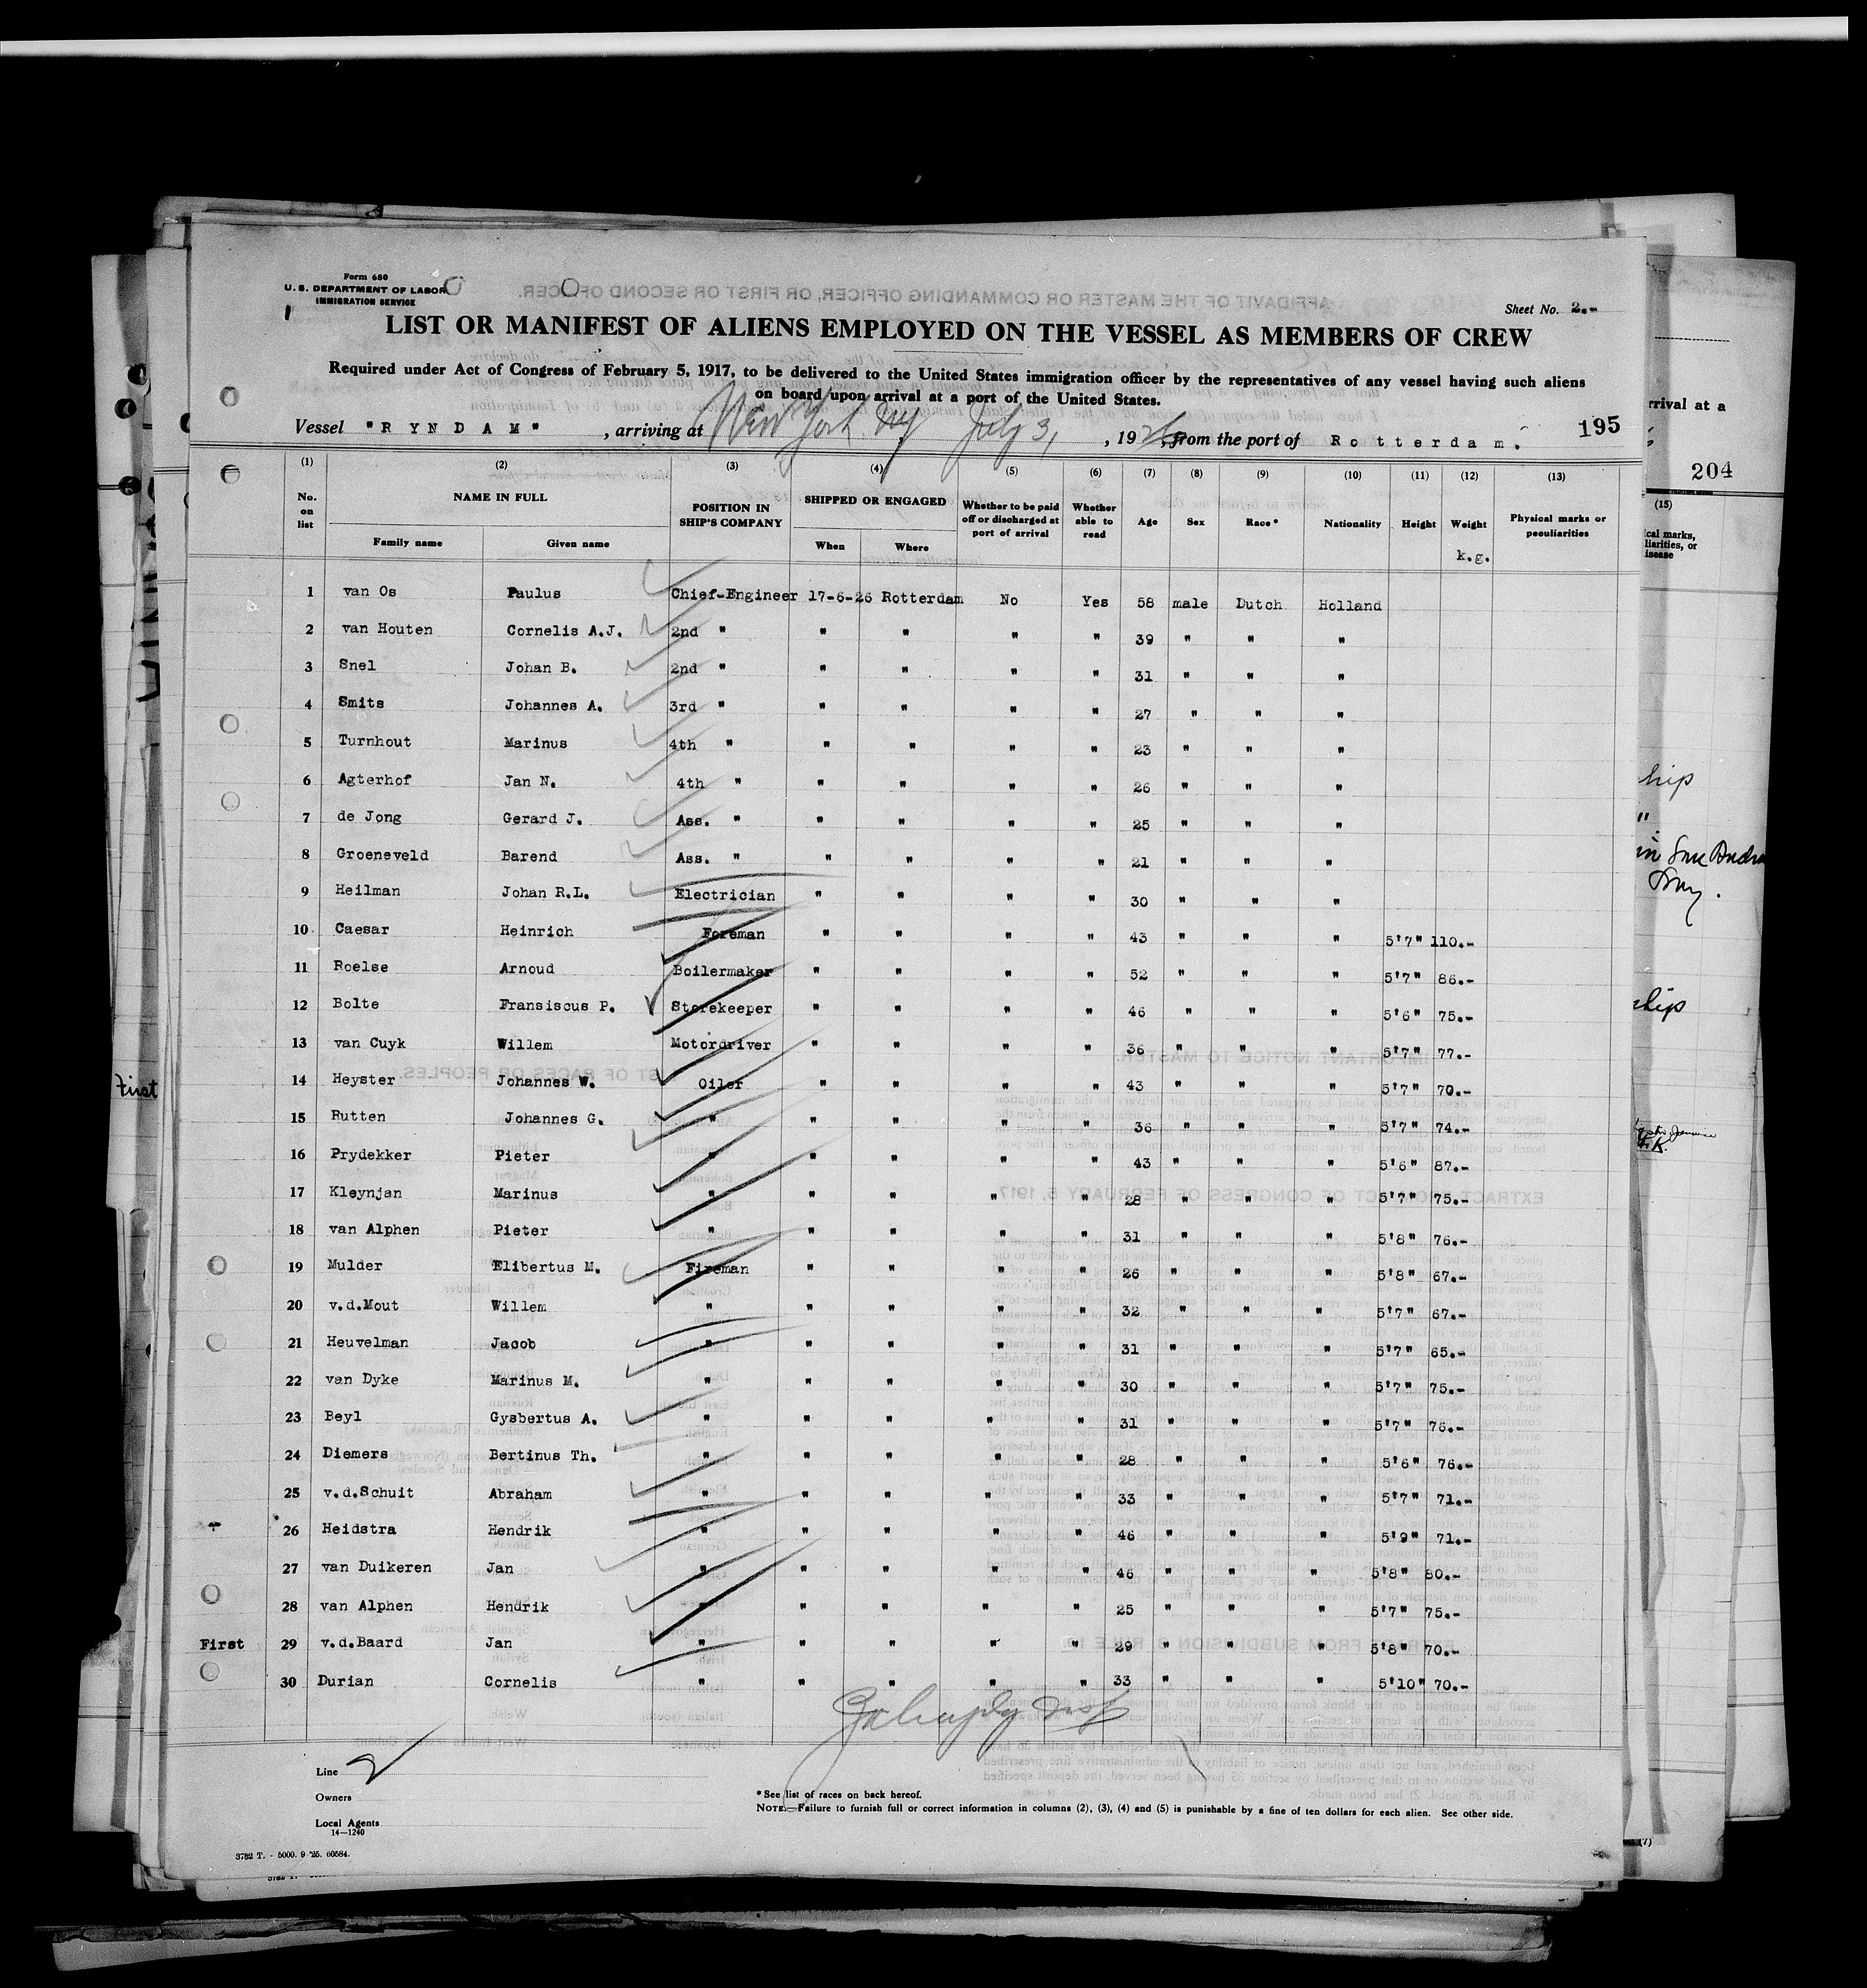 Form 680
U. S. DEPARTMENT OF LABOR
IMMIGRATION SERVICE
Sheet No. 2.-
LIST OR MANIFEST OF ALIENS EMPLOYED ON THE VESSEL AS MEMBERS OF CREW
Required under Act of Congress of February 5, 1917, to be delivered to the United States immigration officer by the representatives of any vessel having such aliens
on board upon arrival at a port of the United States.
Vessel "RYNDAM", arriving at New York. Ny July 3,, 1926, from the port of Rotterdam. 195
(1) (2) (3) (4) (5) (6) (7) (8) (9) (10) (11) (12) (13)
No. on list NAME IN FULL Family name Given name POSITION IN SHIP'S COMPANY SHIPPED OR ENGAGED When Where Whether to be paid off or discharged at port of arrival Whether able to read Age Sex Race* Nationality Height Weight k.g. Physical marks or peculiarities
1 van Os Paulus Chief-Engineer 17-6-26 Rotterdam No Yes 58 male Dutch Holland
2 van Houten Cornelis A.J. 2nd " " " " " 39 " " "
3 Snel Johan B. 2nd " " " " " 31 " " "
4 Smits Johannes A. 3rd " " " " " 27 " " "
5 Turnhout Marinus 4th " " " " " 23 " " "
6 Agterhof Jan N. 4th " " " " " 26 " " "
7 de Jong Gerard J. Ass. " " " " " 25 " " "
8 Groeneveld Barend Ass. " " " " " 21 " " "
9 Heilman Johan R.L. Electrician " " " " 30 " " "
10 Caesar Heinrich Foreman " " " " 43 " " " 5'7" 110.-
11 Roelse Arnoud Boilermaker " " " " 52 " " " 5'7" 86.-
12 Bolte Fransiscus P. Storekeeper " " " " 46 " " " 5'6" 75.-
13 van Cuyk Willem Motordriver " " " " 36 " " " 5'7" 77.-
14 Heyster Johannes W. Oiler " " " " 43 " " " 5'7" 70.-
15 Rutten Johannes G. " " " " " 36 " " " 5'7" 74.-
16 Prydekker Pieter " " " " " 43 " " " 5'6" 87.-
17 Kleynjan Marinus " " " " " 28 " " " 5'7" 75.-
18 van Alphen Pieter " " " " " 31 " " " 5'8" 76.-
19 Mulder Elibertus M. Fireman " " " " 26 " " " 5'8" 67.-
20 v.d.Mout Willem " " " " " 32 " " " 5'7" 67.-
21 Heuvelman Jacob " " " " " 31 " " " 5'7" 65.-
22 van Dyke Marinus M. " " " " " 30 " " " 5'7" 75.-
23 Beyl Gysbertus A. " " " " " 31 " " " 5'7" 76.-
24 Diemers Bertinus Th. " " " " " 28 " " " 5'6" 76.-
25 v.d.Schuit Abraham " " " " " 33 " " " 5'7" 71.-
26 Heidstra Hendrik " " " " " 46 " " " 5'9" 71.-
27 van Duikeren Jan " " " " " 46 " " " 5'8" 80.-
28 van Alphen Hendrik " " " " " 25 " " " 5'7" 75.-
First 29 v.d.Baard Jan " " " " " 29 " " " 5'8" 70.-
30 Durian Cornelis " " " " " 33 " " " 5'10" 70.-
Line
Owners
Local Agents
14—1240
* See list of races on back hereof.
NOTE.—Failure to furnish full or correct information in columns (2), (3), (4) and (5) is punishable by a fine of ten dollars for each alien. See other side.
3782 T. - 5000. 9 '25. 60584.
First
rrival at a
204
(15)
ship
ship